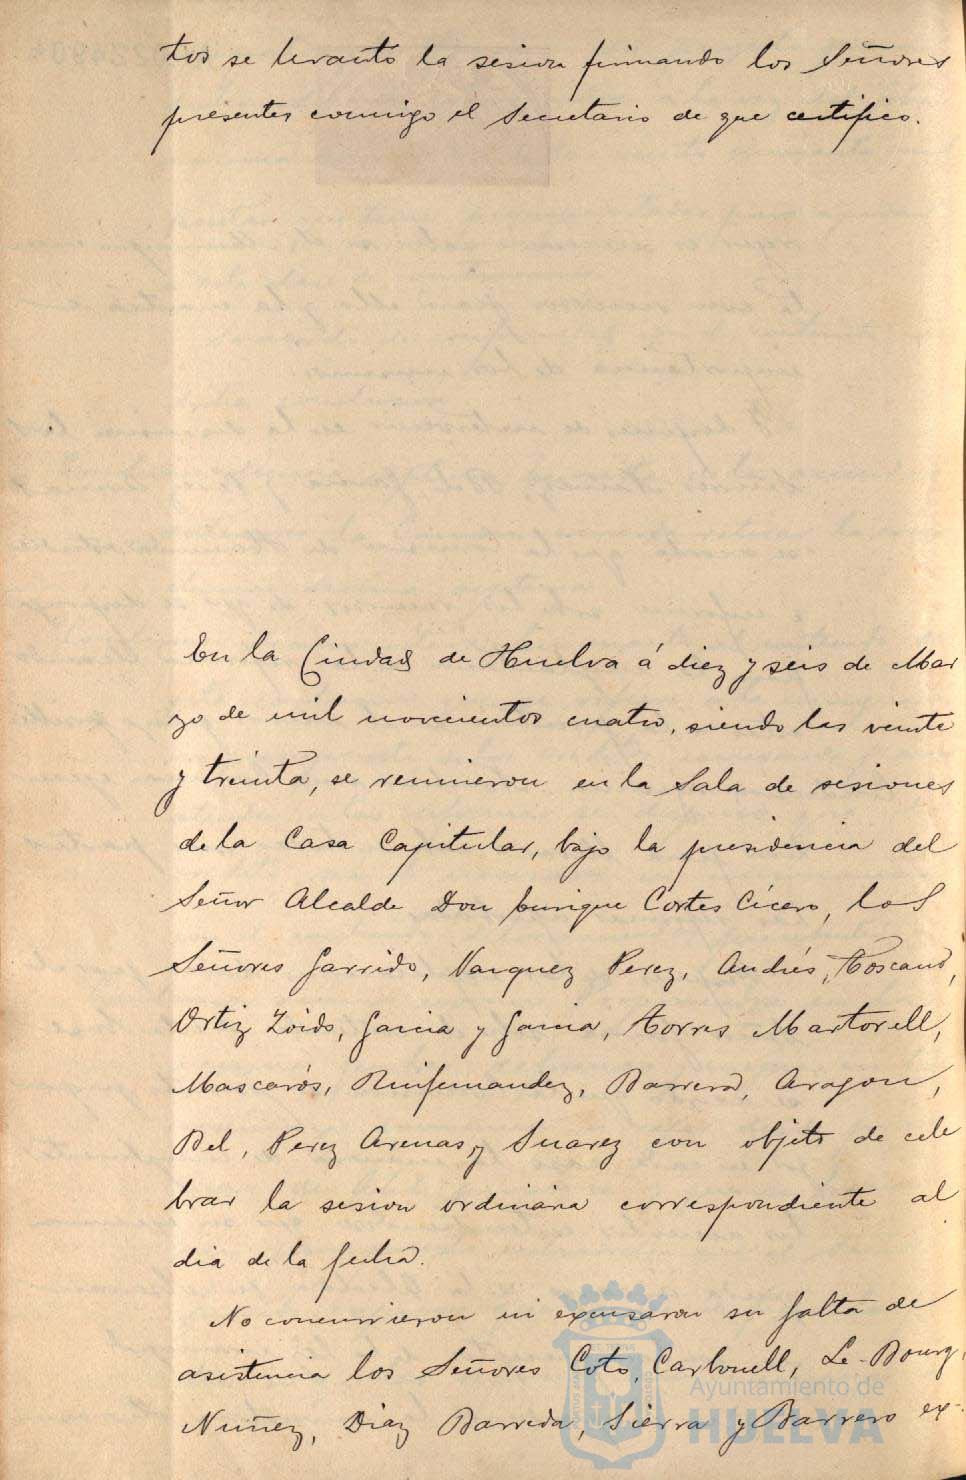 tos se levanto la sesion firmando los Señores
presentes conmigo el Secretario de que certifico.
En la Ciudad de Huelva á diez y seis de Mar
zo de mil novecientos cuatro, siendo las veinte
y treinta, se reunieron en la Sala de sesiones
de la Casa Capitular, bajo la presidencia del
Señor Alcalde Don Enrique Cortes Cícero, los
Señores Garrido, Vazquez Perez, Andrés, Toscano,
Ortiz Zoido, Garcia y Garcia, Torres Martorell,
Mascarós, Ruifernandez, Barrera, Aragon,
Bel, Perez Arenas, y Suarez con objeto de cele
brar la sesion ordinaria correspondiente al
dia de la fecha.
No concurrieron ni excusaron su falta de
asistencia los Señores Coto, Carbonell, Le-Bourg,
Nuñez, Diaz Barreda, Sierra y Barrero ex-
Ayuntamiento de
HUELVA